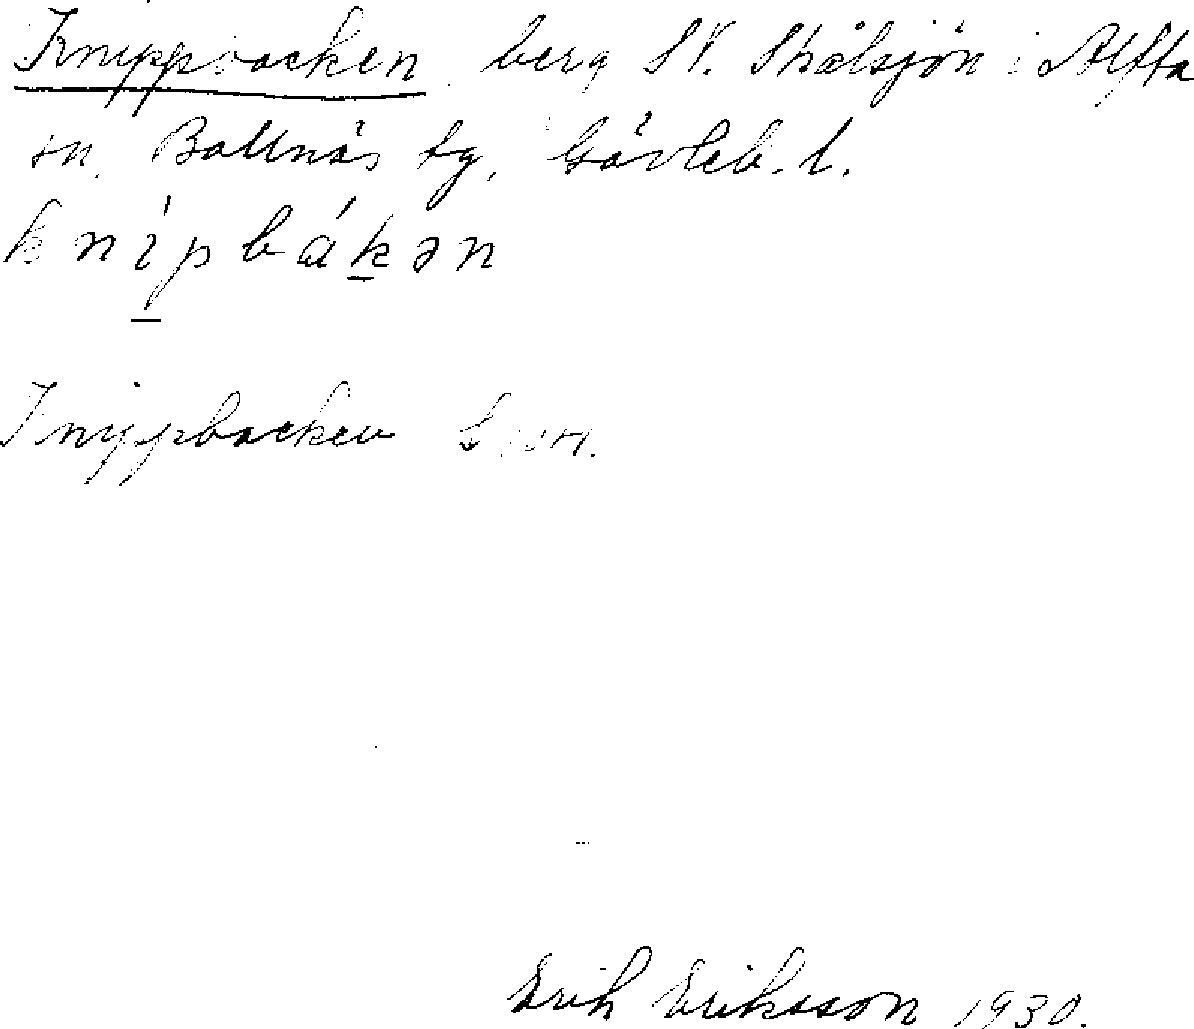 Knippbacken berg SV. Skålsjön i Alfta
sn. Bollnäs tg, Gävleb. l.
knipbákən
Knippbacken
Erik Eriksson 1930.